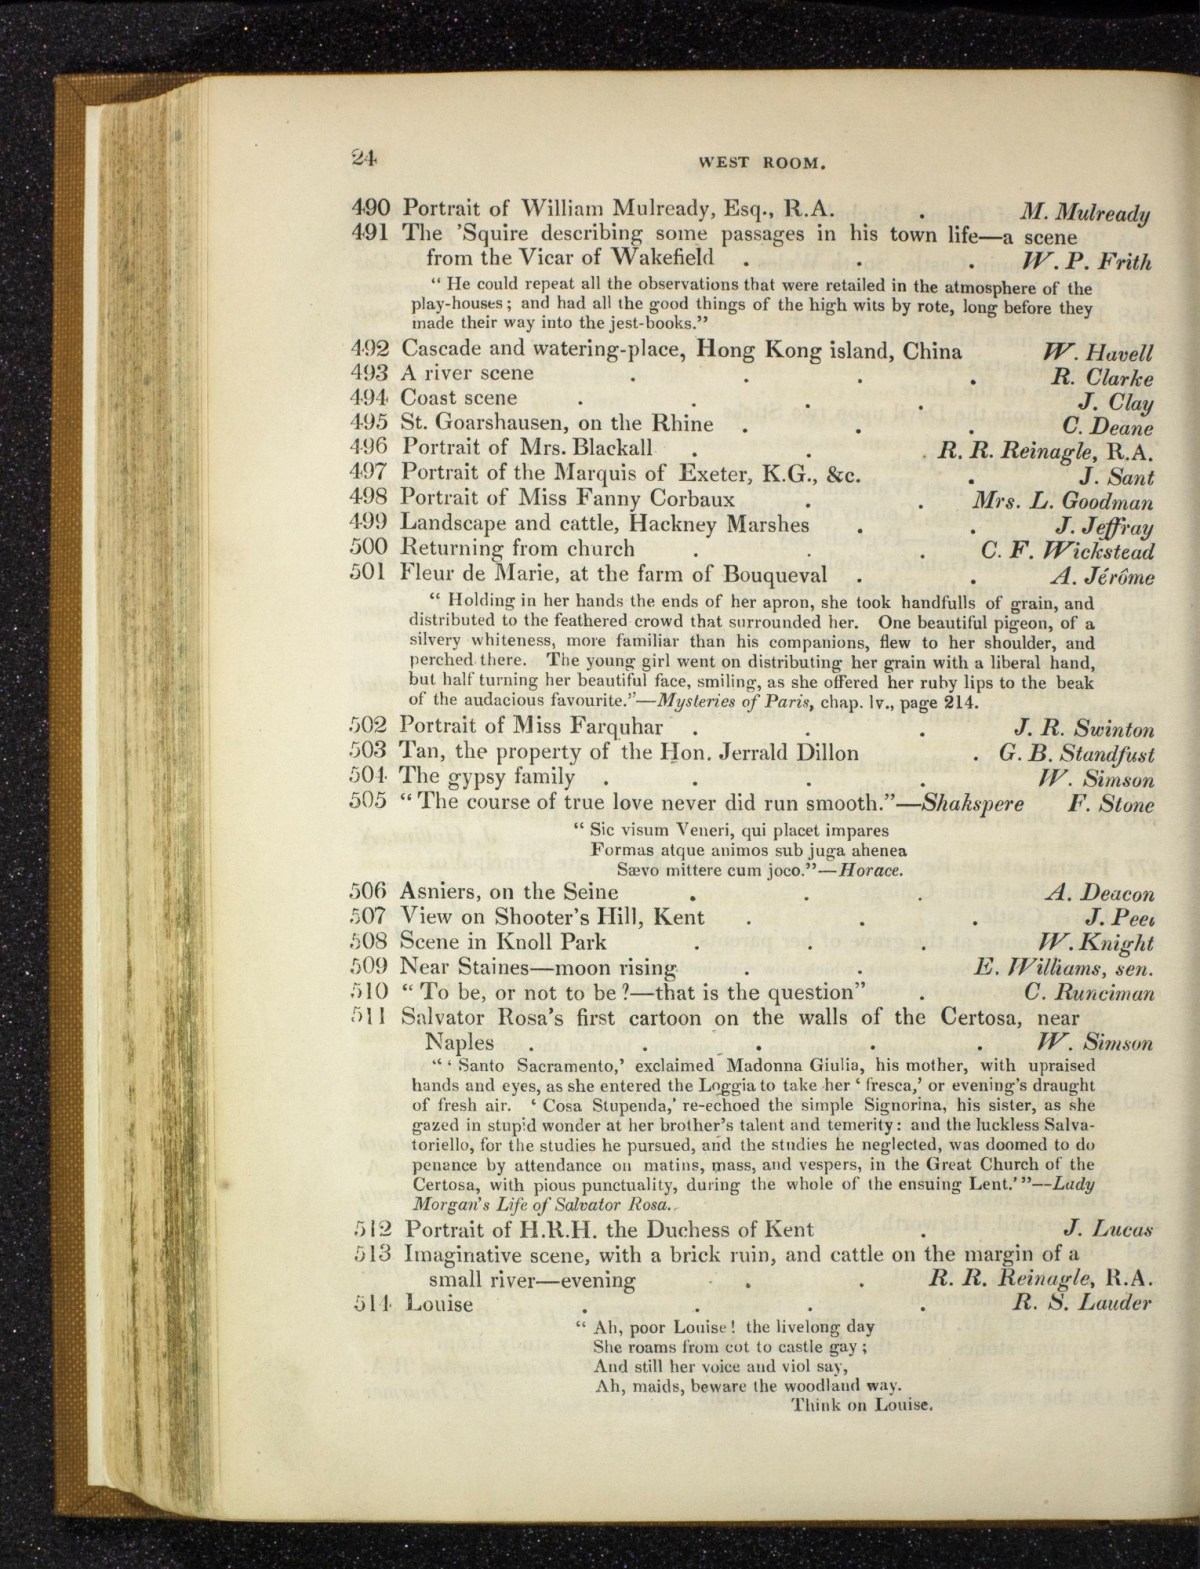 24
WEST ROOM.
490 Portrait of William Mulready, Esq., R.A. . M. Mulready
491 The 'Squire describing some passages in his town life—a scene
from the Vicar of Wakefield . . . W. P. Frith
“ He could repeat all the observations that were retailed in the atmosphere of the
play-houses ; and had all the good things of the high wits by rote, long before they
made their way into the jest-books.”
492 Cascade and watering-place, Hong Kong island, China W. Havell
493 A river scene . . . . R. Clarke
494 Coast scene . . . . J. Clay
495 St. Goarshausen, on the Rhine . . . C. Deane
496 Portrait of Mrs. Blackall . . . R. R. Reinagle, R.A.
497 Portrait of the Marquis of Exeter, K.G., &c. . J. Sant
498 Portrait of Miss Fanny Corbaux . . Mrs. L. Goodman
499 Landscape and cattle, Hackney Marshes . . J. Jeffray
500 Returning from church . . . C. F. Wickstead
501 Fleur de Marie, at the farm of Bouqueval . . A. Jérôme
“ Holding in her hands the ends of her apron, she took handfulls of grain, and
distributed to the feathered crowd that surrounded her. One beautiful pigeon, of a
silvery whiteness, more familiar than his companions, flew to her shoulder, and
perched there. The young girl went on distributing her grain with a liberal hand,
but half turning her beautiful face, smiling, as she offered her ruby lips to the beak
of the audacious favourite.”—Mysteries of Paris, chap. lv., page 214.
502 Portrait of Miss Farquhar . . . J. R. Swinton
503 Tan, the property of the Hon. Jerrald Dillon . G. B. Standfust
504 The gypsy family . . . . W. Simson
505 “ The course of true love never did run smooth.”—Shakspere F. Stone
“ Sic visum Veneri, qui placet impares
Formas atque animos sub juga ahenea
Sævo mittere cum joco.”—Horace.
506 Asniers, on the Seine . . . A. Deacon
507 View on Shooter's Hill, Kent . . . J. Peel
508 Scene in Knoll Park . . . W. Knight
509 Near Staines—moon rising . . E. Williams, sen.
510 “ To be, or not to be ?—that is the question” . C. Runciman
511 Salvator Rosa's first cartoon on the walls of the Certosa, near
Naples . . . . . W. Simson
“ ‘ Santo Sacramento,’ exclaimed Madonna Giulia, his mother, with upraised
hands and eyes, as she entered the Loggia to take her ‘ fresca,’ or evening's draught
of fresh air. ‘ Cosa Stupenda,’ re-echoed the simple Signorina, his sister, as she
gazed in stupid wonder at her brother's talent and temerity : and the luckless Salva-
toriello, for the studies he pursued, and the studies he neglected, was doomed to do
penance by attendance on matins, mass, and vespers, in the Great Church of the
Certosa, with pious punctuality, during the whole of the ensuing Lent.’ ”—Lady
Morgan's Life of Salvator Rosa.
512 Portrait of H.R.H. the Duchess of Kent . J. Lucas
513 Imaginative scene, with a brick ruin, and cattle on the margin of a
small river—evening . . R. R. Reinagle, R.A.
514 Louise . . . . R. S. Lauder
“ Ah, poor Louise ! the livelong day
She roams from cot to castle gay ;
And still her voice and viol say,
Ah, maids, beware the woodland way.
Think on Louise.